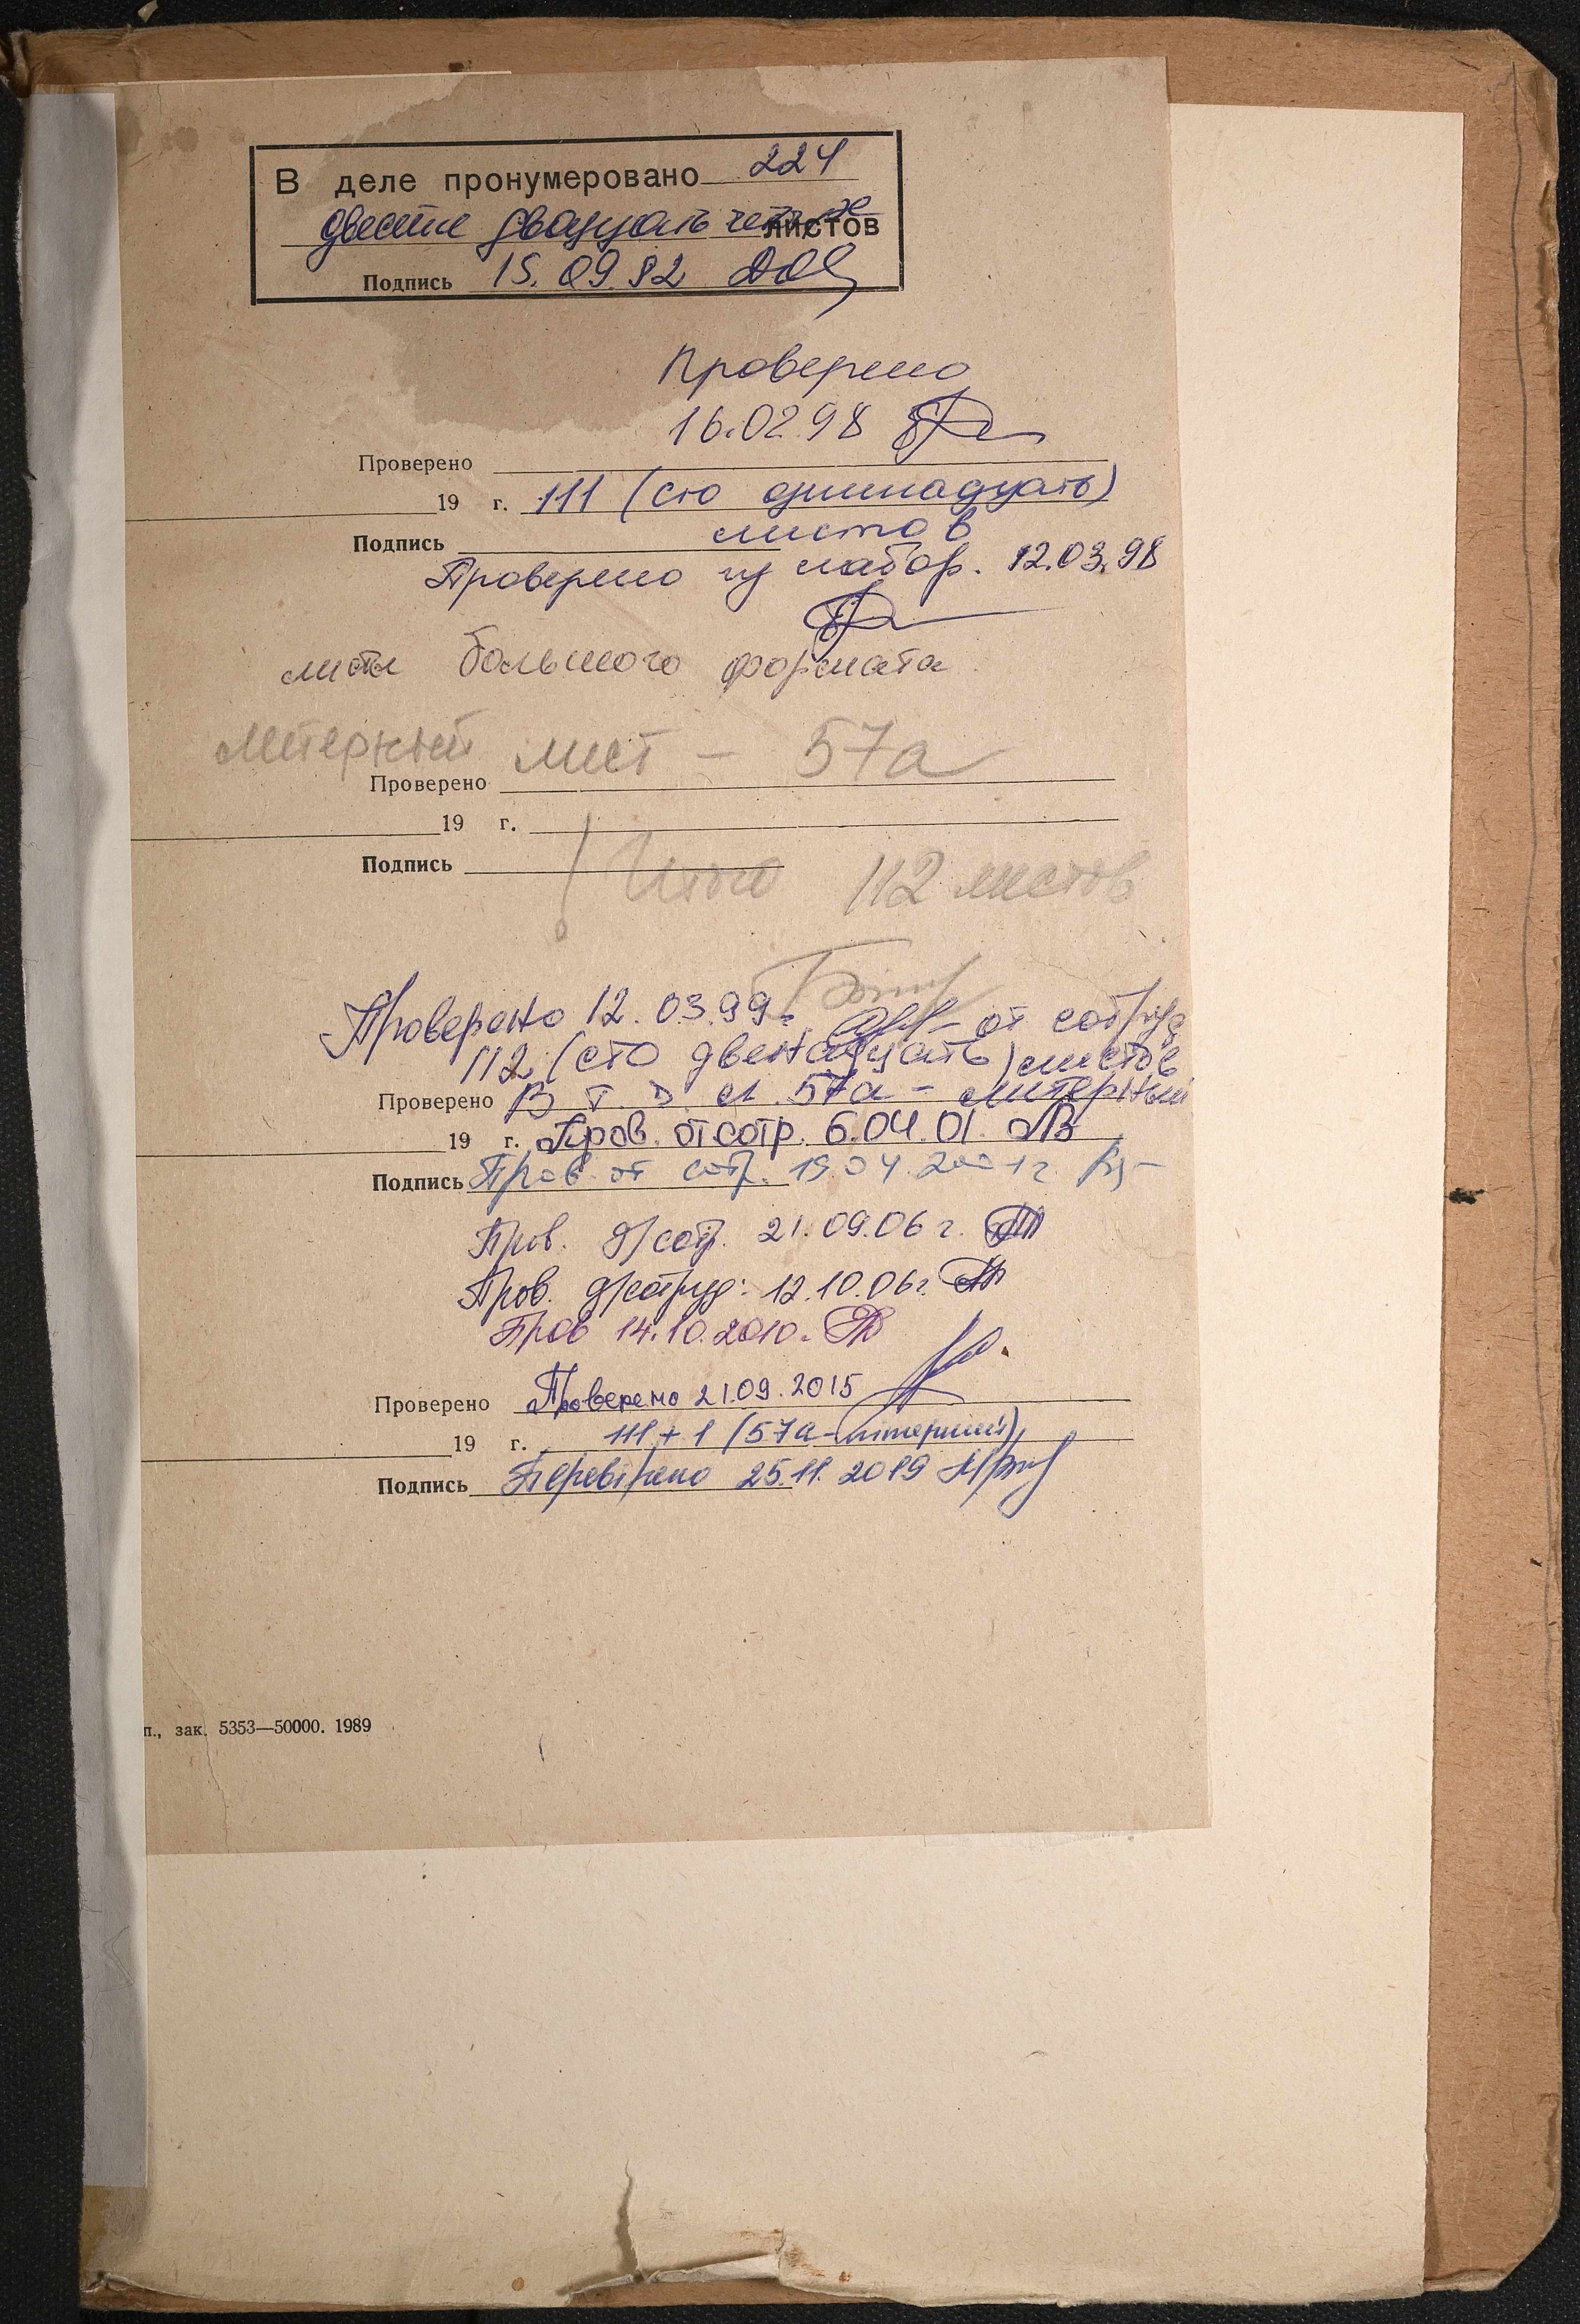 В деле пронумеровано 224
двести двадцать четыре листов
Подпись 15.09.92
Проверено
16.02.98
Проверено
19 г. 111 (сто одиннадцать)
листов
Подпись
Проверено из лабор. 12.03.98
листы большого формата
Литерный лист - 57а
Проверено
19 г.
Подпись
Итого 112 листов
Проверено 12.03.99г. от сотруд
112 (сто двенадцать) листов
В т.ч. л. 57а - литерный
Проверено
19 г. Пров. от сотр. 6.04.01.
Подпись Пров. от сотр. 19.04.2001г.
Пров. от сотр. 21.09.06 г.
Пров. от сотруд: 12.10.06г.
Пров 14.10.2010.
Проверено Проверено 21.09.2015
19 г. 111 + 1 (57а - літерний)
Подпись Перевірено 25.11.2019
п., зак. 5353—50000. 1989